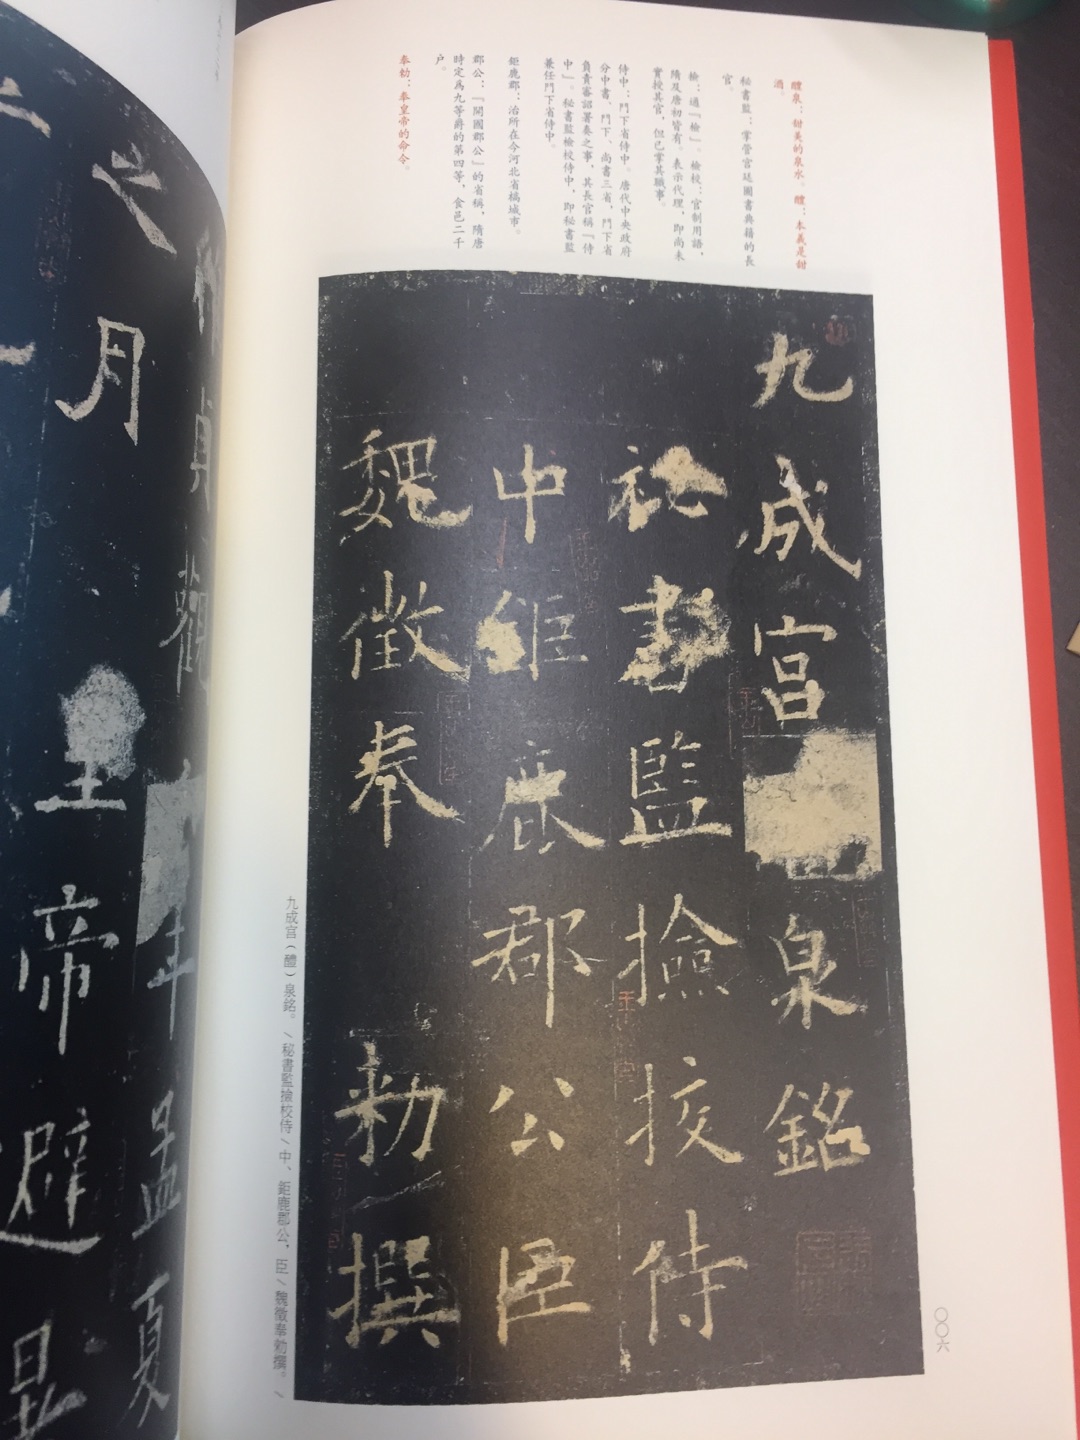 醴泉：甜美的泉水。醴：本義是甜
酒。
秘書監：掌管宮廷圖書典籍的長
官。
檢：通『檢』。檢校：官制用語，
隋及唐初皆有。表示代理，即尚未
實授其官，但已掌其職事。
侍中：門下省侍中。唐代中央政府
分中書、門下、尚書三省，門下省
負責審詔署奏之事，其長官稱『侍
中』。秘書監檢校侍中，即秘書監
兼任門下省侍中。
鉅鹿郡：治所在今河北省槁城市。
郡公：『開國郡公』的省稱，隋唐
時定爲九等爵的第四等，食邑二千
户。
奉勅：奉皇帝的命令。
九成宮泉銘
秘書監撿挍侍
中鉅鹿郡公臣
魏徵奉 勅撰
九成宮（醴）泉銘。╲秘書監撿校侍╲中、鉅鹿郡公、臣╲魏徵奉勅撰。╲
〇〇六
貞觀 年孟夏
之月
皇帝避暑